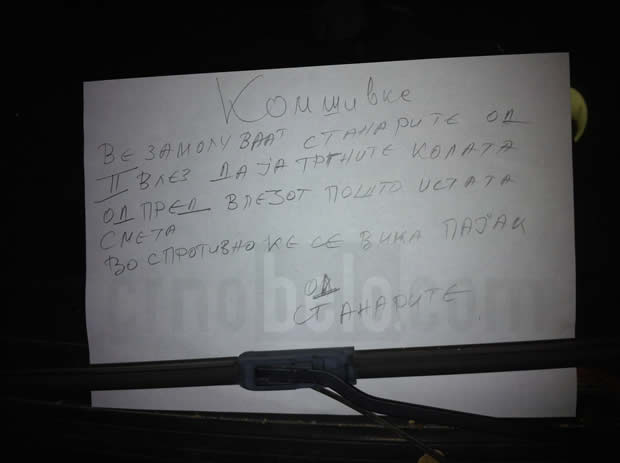 Комшивке
ВЕ ЗАМОЛУВААТ СТАНАРИТЕ ОД
II ВЛЕЗ ДА ЈА ТРГНИТЕ КОЛАТА
ОД ПРЕД ВЛЕЗОТ ПОШТО ИСТАТА
СМЕТА
ВО СПРОТИВНО КЕ СЕ ВИКА ПАЈАК
ОД
СТАНАРИТЕ
crnobelo.com